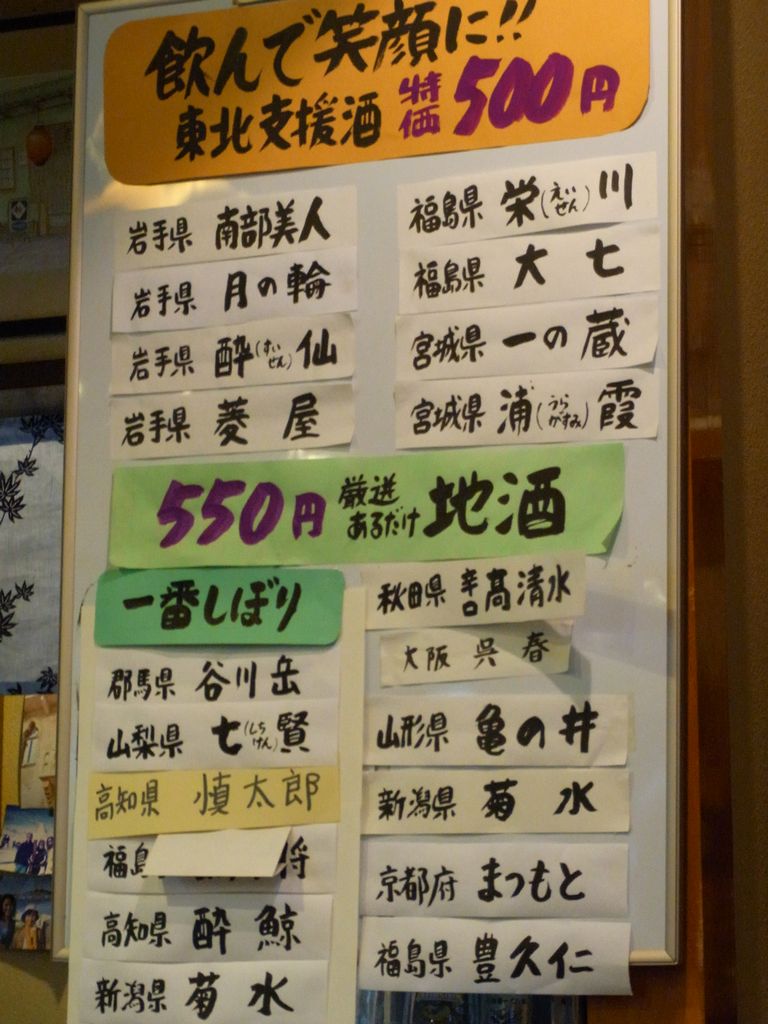 飲んで笑顔に!!
東北支援酒 特価 500円
岩手県 南部美人
岩手県 月の輪
岩手県 酔(すいせん)仙
岩手県 菱屋
福島県 栄(えいせん)川
福島県 大七
宮城県 一の蔵
宮城県 浦(うらがすみ)霞
550円 厳送あるだけ 地酒
一番しぼり
郡馬県 谷川岳
山梨県 七(しちけん)賢
高知県 慎太郎
福島 将
高知県 酔鯨
新潟県 菊水
秋田県 辛口高清水
大阪 呉春
山形県 亀の井
新潟県 菊水
京都府 まつもと
福島県 豊久仁